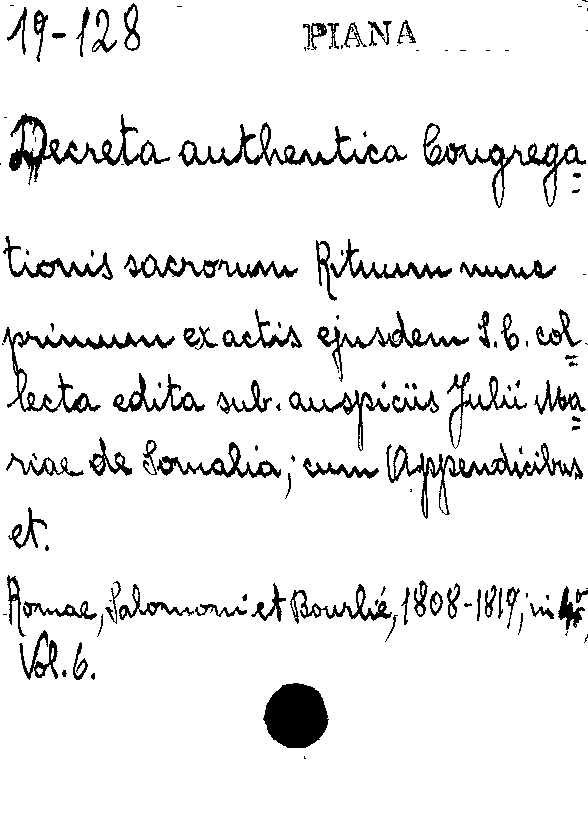 19-128 PIANA
Decreta authentica Congrega=
tionis sacrorum Rituum nunc
primum ex actis ejusdem S.C. col=
lecta edita sub. auspiciis Julii Ma=
riae de Somalia; cum Appendicibus
et.
Romae, Salomoni et Bourlié, 1808-1819; in 4º
Vol. 6.